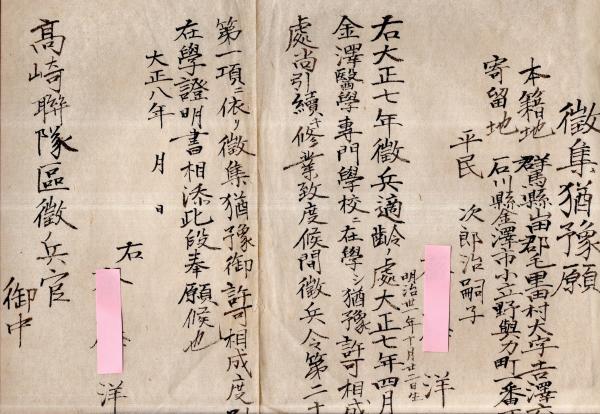 徴集猶豫願
本籍地 群馬縣山田郡毛里田村大字吉澤
寄留地 石川縣金澤市小立野與力町一番
平民 次郎治嗣子
洋
明治卅一年十月廿二日生
右大正七年徴兵適齢ノ處大正七年四月
金澤醫學專門學校ニ在學シ猶豫許可相成
處尚引續キ修業致度候間徴兵令第二十
第一項ニ依リ徴集猶豫御許可相成度別
在學證明書相添此段奉願候也
大正八年 月 日
右
洋
高崎聯隊區徴兵官
御中